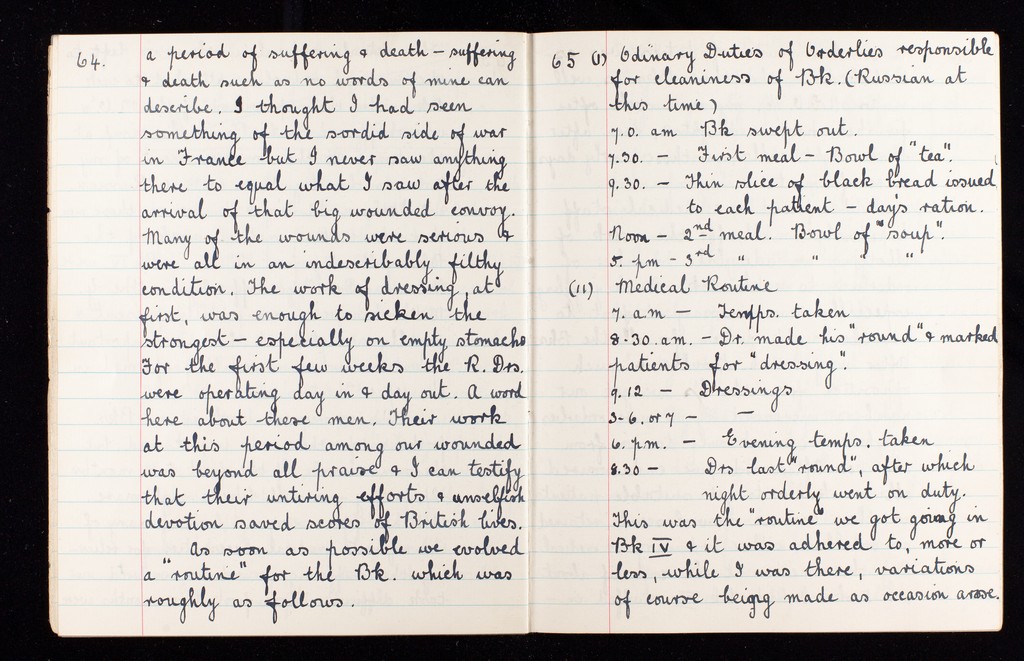 64.
a period of suffering & death – suffering
& death such as no words of mine can
describe. I thought I had seen
something of the sordid side of war
in France but I never saw anything
there to equal what I saw after the
arrival of that big wounded convoy.
Many of the wounds were serious &
were all in an indescribably filthy
condition. The work of dressing, at
first, was enough to sicken the
strongest – especially on empty stomachs
For the first few weeks the R. Drs.
were operating day in & day out. A word
here about these men. Their work
at this period among our wounded
was beyond all praise & I can testify
that their untiring efforts & unselfish
devotion saved scores of British lives.
As soon as possible we evolved
a "routine" for the Bk. which was
roughly as follows.
65 (1) Odinary Duties of Orderlies responsible
for cleaniness of Bk. (Russian at
this time)
7.0. am Bk swept out.
7.30. – First meal – Bowl of "tea".
9.30. – Thin slice of black bread issued
to each patient – day's ration.
Noon – 2nd meal. Bowl of "soup".
5. pm – 3rd " " " "
(11) Medical Routine
7. a.m – Temps. taken
8.30. am. – Dr. made his "round" & marked
patients for "dressing".
9.12 – Dressings
3-6. or 7 – –
6. p.m. – Evening temps. taken
8.30 – Drs last "round", after which
night orderly went on duty.
This was the "routine" we got going in
Bk IV & it was adhered to, more or
less, while I was there, variations
of course being made as occasion arose.